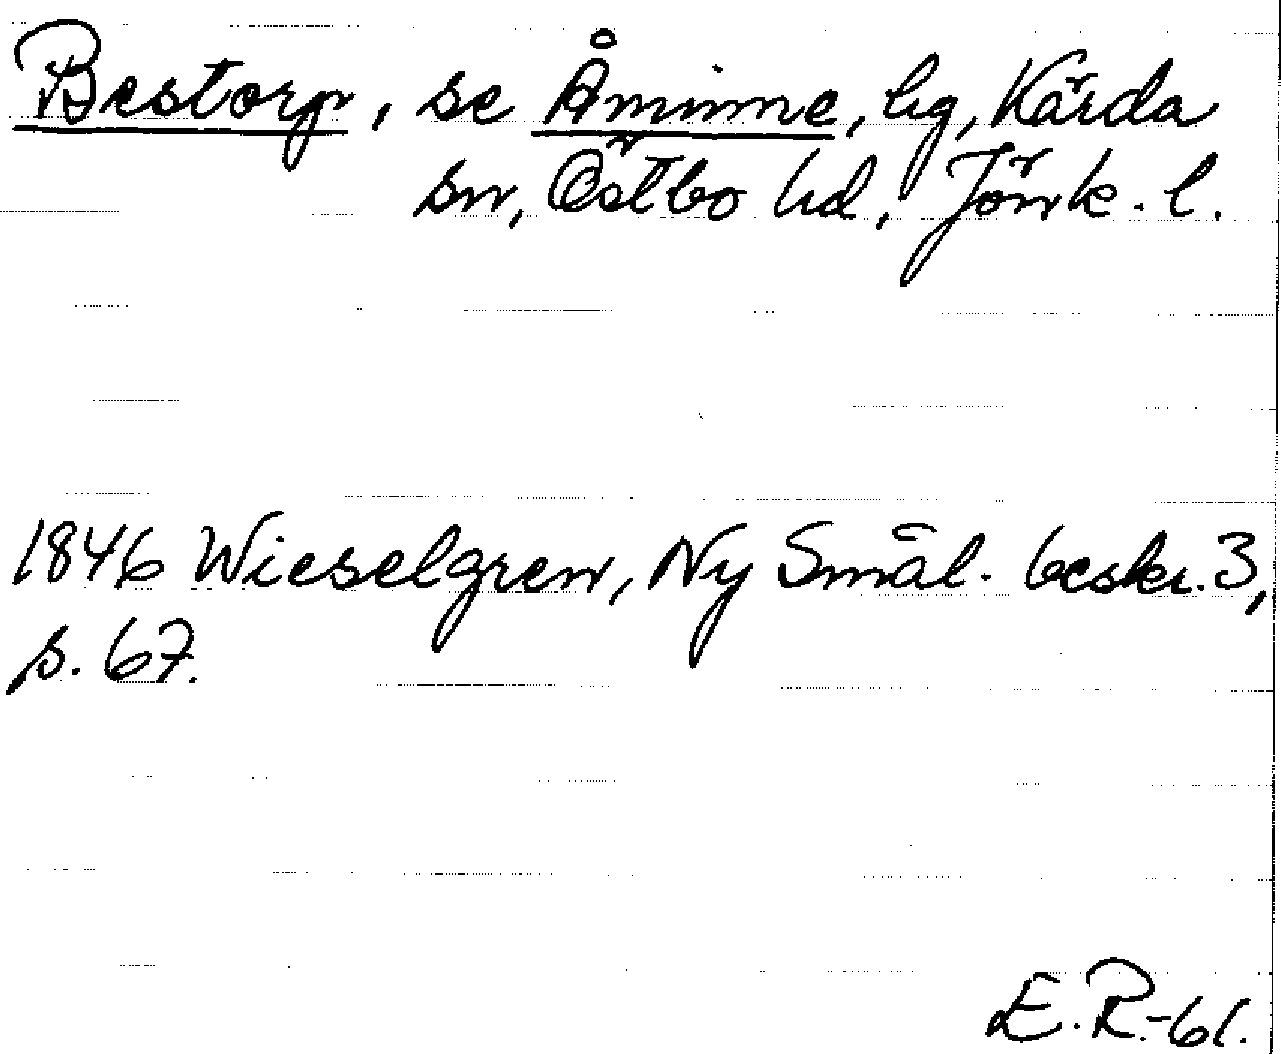 Bestorp, se Åminne, hg, Kärda
sn, Östbo hd, Jönk. l.
1846 Wieselgren, Ny Smål. beskr. 3,
s. 67.
E.R.-61.